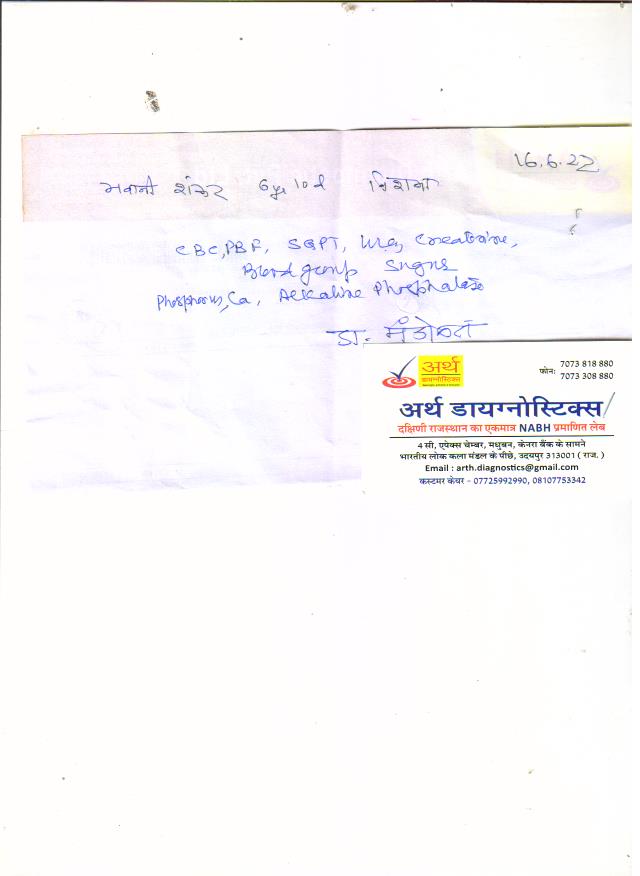 16.6.22
भवानी शंकर 6 yr 10 d
CBC, PBF, SGPT, Urea, Creatinine,
Blood group
Phosphorus, Ca, Alkaline Phosphatase
डा.
अर्थ
डायग्नोस्टिक्स
फोन: 7073 818 880
7073 308 880
अर्थ डायग्नोस्टिक्स
दक्षिणी राजस्थान का एकमात्र NABH प्रमाणित लेब
4 सी, एपेक्स चेम्बर, मधुबन, केनरा बैंक के सामने
भारतीय लोक कला मंडल के पीछे, उदयपुर 313001 ( राज. )
Email : arth.diagnostics@gmail.com
कस्टमर केयर - 07725992990, 08107753342